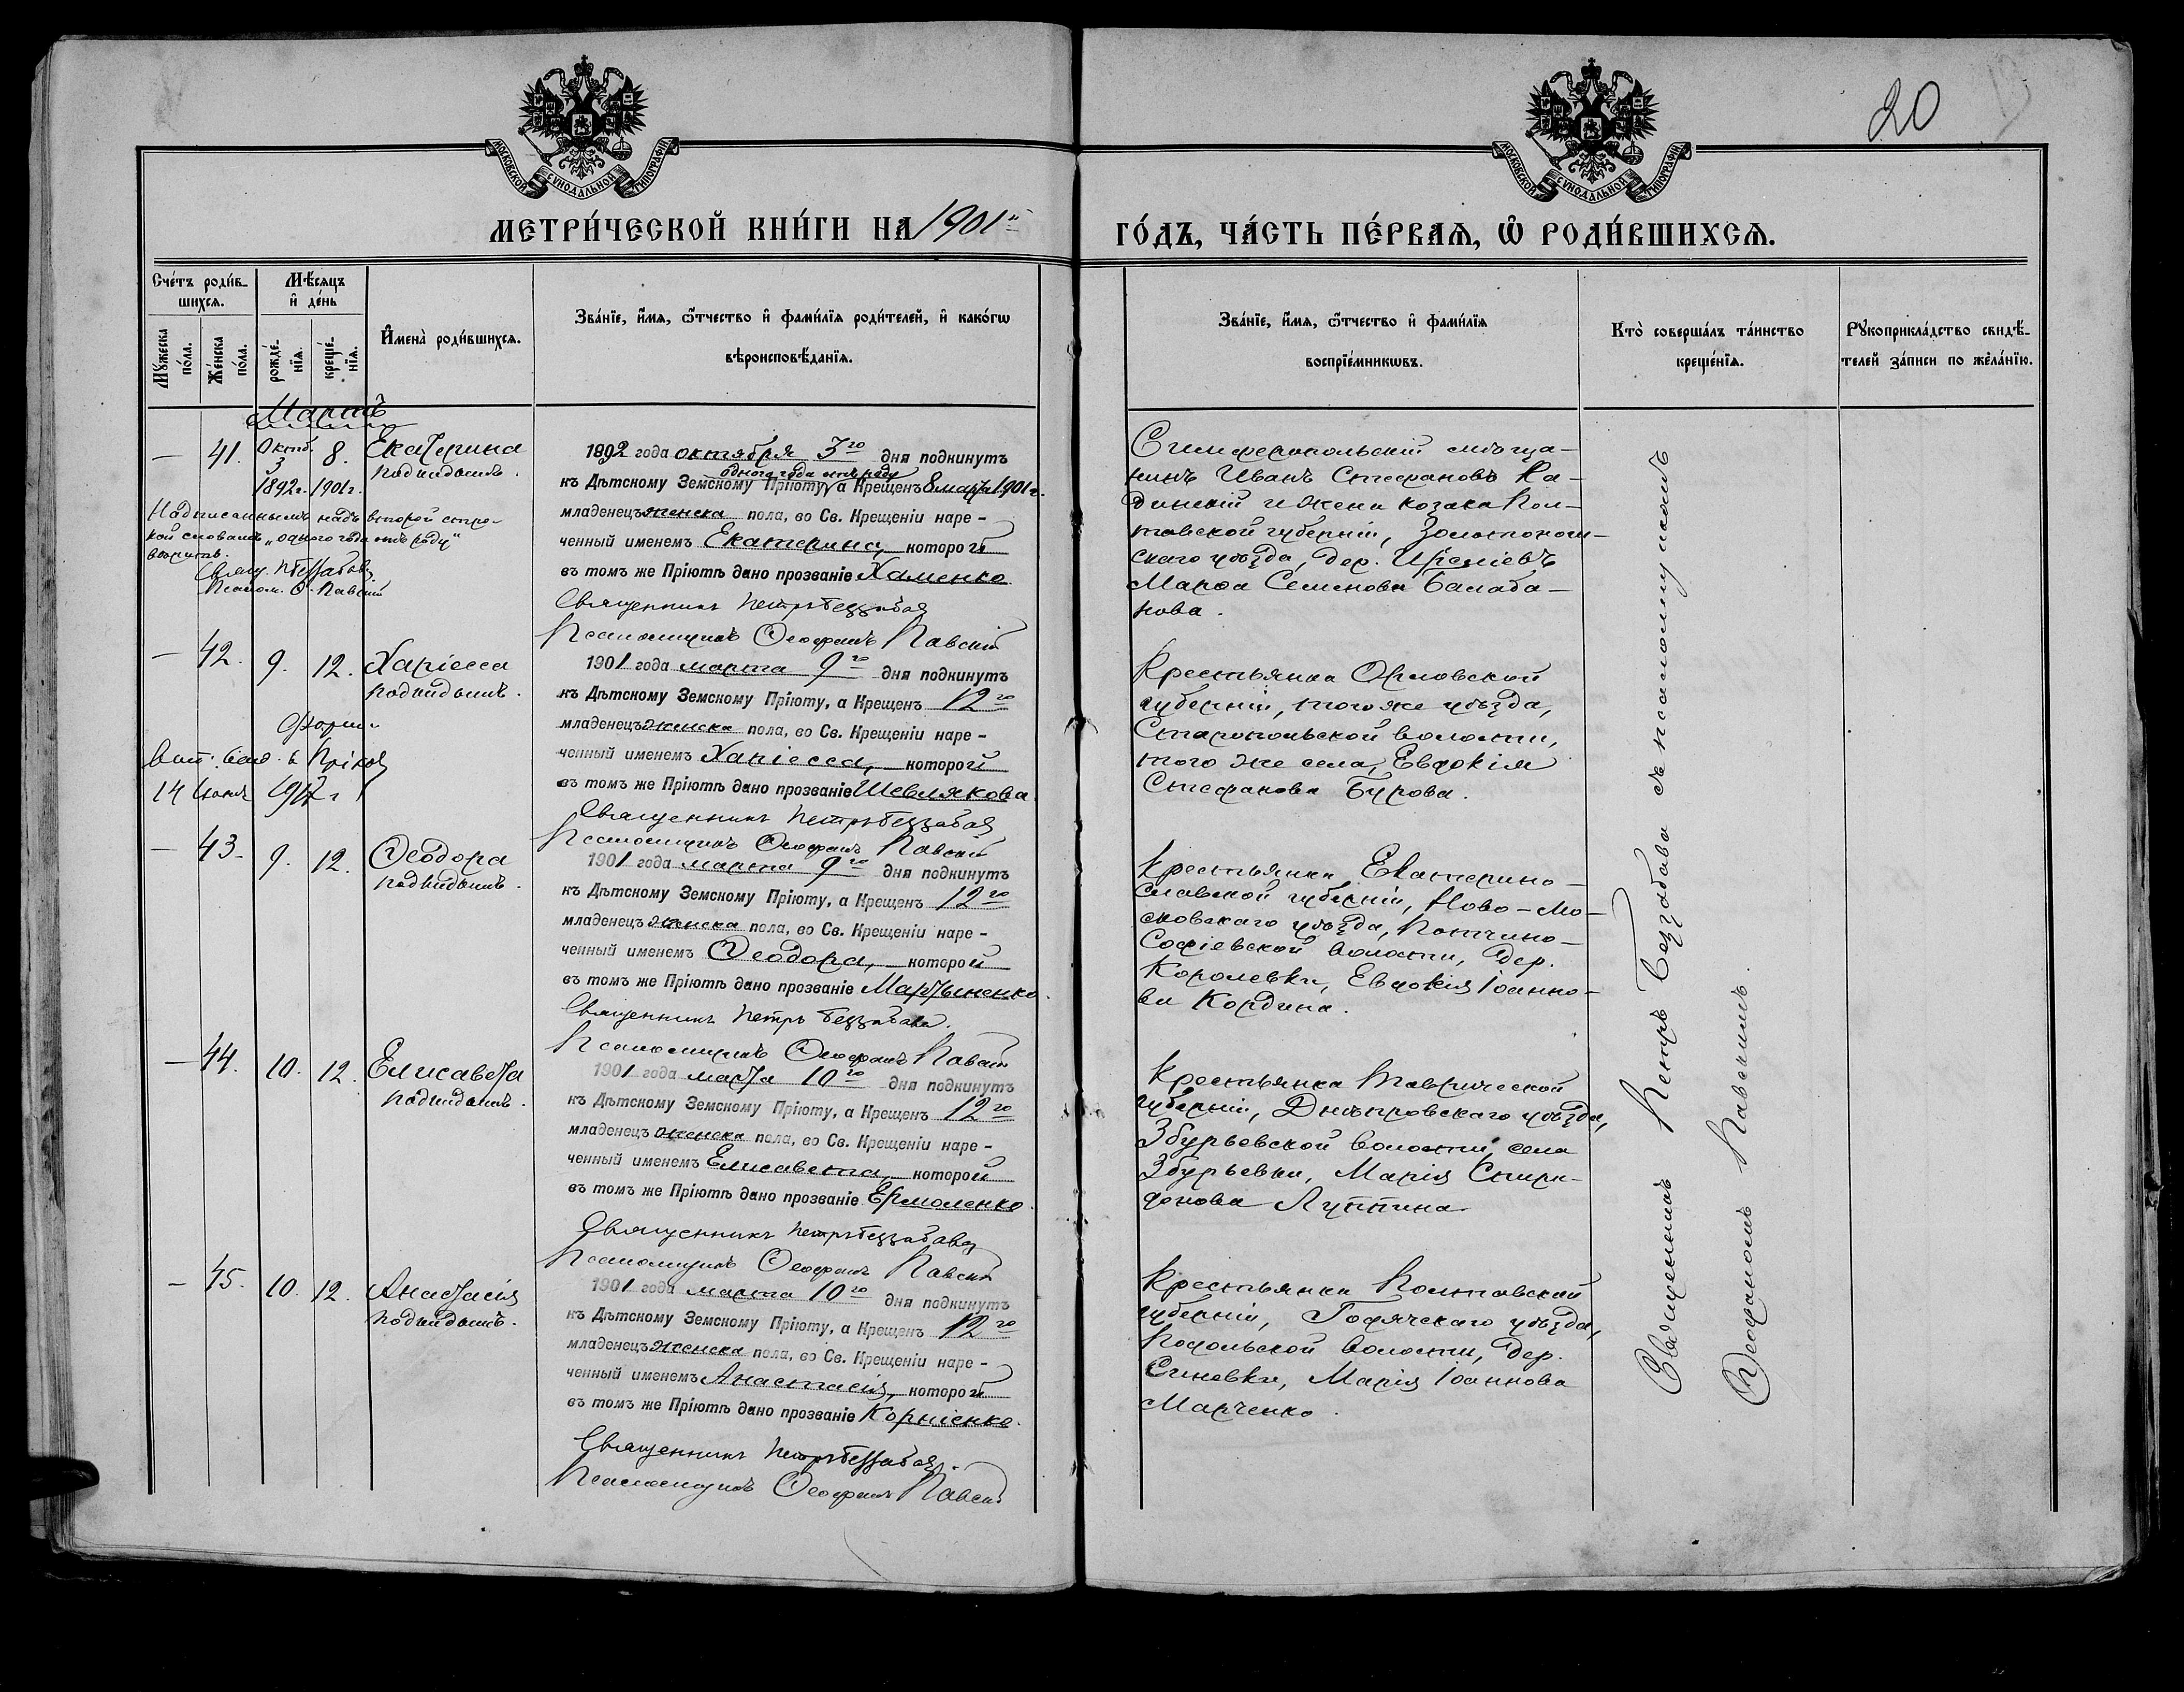 20
МОСКОВСКОЙ СѴНОДАЛЬНОЙ ТИПОГРАФІИ
МОСКОВСКОЙ СѴНОДАЛЬНОЙ ТИПОГРАФІИ
МЕТРИ́ЧЕСКОЙ КНИ́ГИ НА 1901й
ГО́ДЪ, ЧА́СТЬ ПЕ́РВАѦ, Ѽ РОДИ́ВШИХСѦ.
Сче́тъ роди́в-
шихсѧ.
Мꙋ́жеска по́ла.
Же́нска по́ла.
Мѣ́сѧцъ
и҆ де́нь
рожде́-
нїѧ.
креще́-
нїѧ.
И҆мена̀ роди́вшихсѧ.
Зва́нїе, и҆́мѧ, ѻ҆́тчество и҆ фами́лїѧ роди́телей, и҆ како́гѡ
вѣроисповѣ́данїѧ.
Зва́нїе, и҆́мѧ, ѻ҆́тчество и҆ фами́лїѧ
воспрїе́мникѡвъ.
Кто̀ соверша́лъ та́инство
креще́нїѧ.
Рꙋкоприкла́дство свидѣ́-
телей за́писи по жела́нїю.
Мартъ
— 41. Октб. 3 1892 г. 8. 1901 г.
Екатерина
подкидышъ.
Надписаннымъ надъ второй стро-
кой словамъ „одного года отъ роду“
вѣрить.
Псалом. Ѳ. Павскій
1892 года октября 3го дня подкинутъ
одного года отъ роду
къ Дѣтскому Земскому Пріюту, а Крещенъ 8 марта 1901 г.
младенецъ женска пола, во Св. Крещеніи наре-
ченный именемъ Екатерина, которой
въ томъ же Пріютѣ дано прозваніе Хаменко.
Священникъ Петръ Беззабава
Псаломщикъ Ѳеофанъ Павскій
Симферопольскій мѣща-
нинъ Иванъ Стефановъ Ка-
динскій и жена козака Пол-
тавской губерніи, Золотонош-
скаго уѣзда, дер.
Марѳа Семенова Балаба-
нова.
— 42. 9. 12. Харіесса
подкидышъ.
14 1917 г
1901 года марта 9го дня подкинутъ
къ Дѣтскому Земскому Пріюту, а Крещенъ 12го
младенецъ женска пола, во Св. Крещеніи наре-
ченный именемъ Харіесса, которой
въ томъ же Пріютѣ дано прозваніе Шевлякова.
Священникъ Петръ Беззабава
Псаломщикъ Ѳеофанъ Павскій
Крестьянка Орловской
губерніи, того же уѣзда,
Старопольской волости,
того же села, Евдокія
Стефанова Бурова.
— 43. 9. 12. Ѳеодора
подкидышъ.
1901 года марта 9го дня подкинутъ
къ Дѣтскому Земскому Пріюту, а Крещенъ 12го
младенецъ женска пола, во Св. Крещеніи наре-
ченный именемъ Ѳеодора, которой
въ томъ же Пріютѣ дано прозваніе Мартыненко.
Священникъ Петръ Беззабава.
Псаломщикъ Ѳеофанъ Павскій
Крестьянка Екатерино-
славской губерніи, Ново-Мо-
сковскаго уѣзда,
Софіевской волости, дер.
Королевки, Евдокія Іоанно-
ва Кордина.
— 44. 10. 12. Елисавета
подкидышъ.
1901 года марта 10го дня подкинутъ
къ Дѣтскому Земскому Пріюту, а Крещенъ 12го
младенецъ женска пола, во Св. Крещеніи наре-
ченный именемъ Елисавета, которой
въ томъ же Пріютѣ дано прозваніе Ермоленко.
Священникъ Петръ Беззабава
Псаломщикъ Ѳеофанъ Павскій
Крестьянка Таврической
губерніи, Днѣпровскаго уѣзда,
Збурьевской волости, села
Збурьевки, Марія Спири-
донова Луппина.
— 45. 10. 12. Анастасія
подкидышъ.
1901 года марта 10го дня подкинутъ
къ Дѣтскому Земскому Пріюту, а Крещенъ 12го
младенецъ женска пола, во Св. Крещеніи наре-
ченный именемъ Анастасія, которой
въ томъ же Пріютѣ дано прозваніе Корніенко.
Священникъ Петръ Беззабава.
Псаломщикъ Ѳеофанъ Павскій
Крестьянка Полтавской
губерніи, Гадячскаго уѣзда,
волости, дер.
Синевки, Марія Іоаннова
Марченко.
Священникъ Петръ Беззабава съ псаломщикомъ
Ѳеофаномъ Павскимъ.